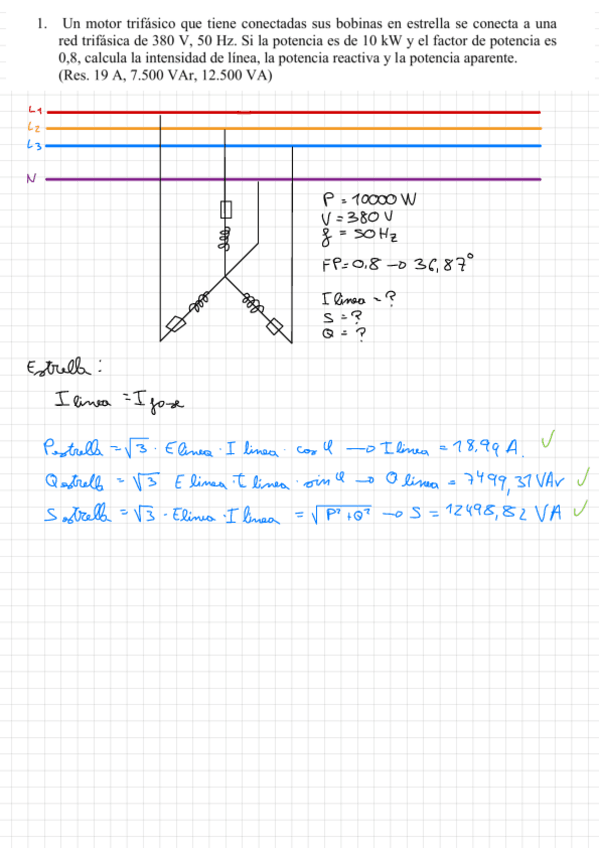 1. Un motor trifásico que tiene conectadas sus bobinas en estrella se conecta a una
red trifásica de 380 V, 50 Hz. Si la potencia es de 10 kW y el factor de potencia es
0,8, calcula la intensidad de línea, la potencia reactiva y la potencia aparente.
(Res. 19 A, 7.500 VAr, 12.500 VA)
L1
L2
L3
N
P = 10000 W
V = 380 V
f = 50 Hz
FP = 0.8 → 36,87°
I linea = ?
S = ?
Q = ?
Estrella :
I linea = I fase
Pestrella = √3 · E linea · I linea · cos φ → I linea = 18,99 A. ✓
Qestrella = √3 E linea · I linea · sin φ → Q linea = 7499,31 VAr ✓
Sestrella = √3 · Elinea · I linea = √P²+Q² → S = 12498,82 VA ✓